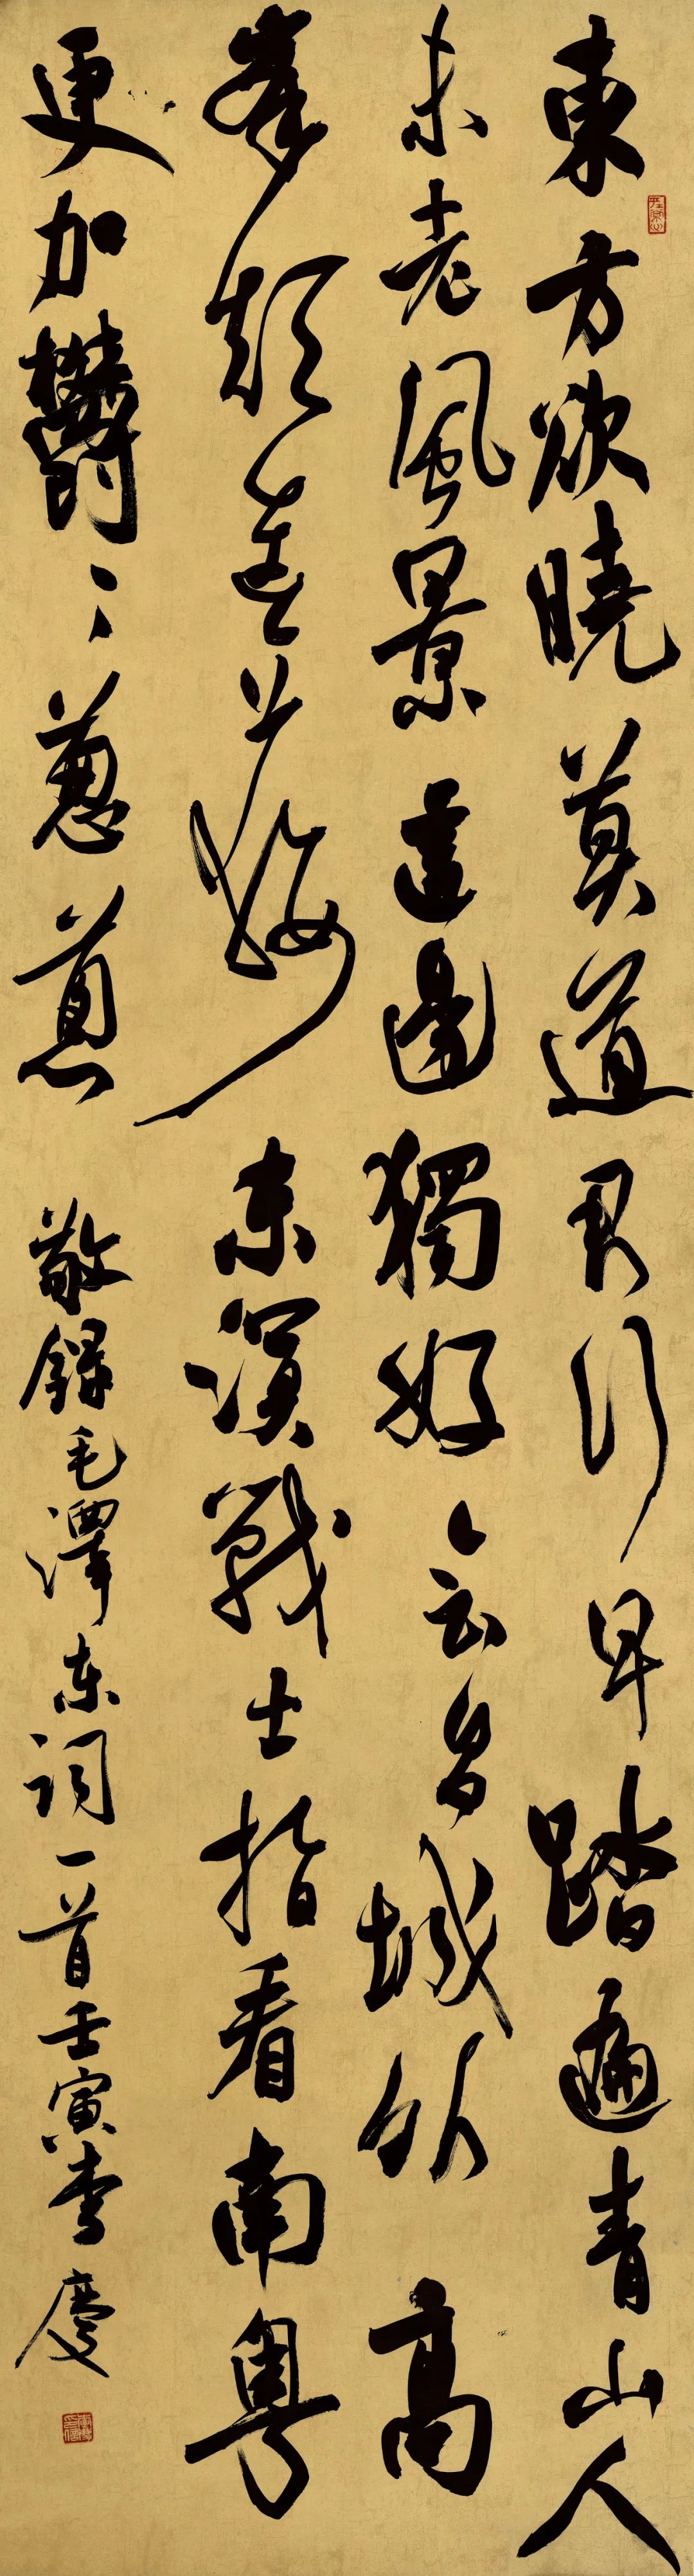 東方欲曉莫道君行早踏遍青山人
未老風景這邊獨好會昌城外高
峯顛連直接东溟戰士指看南粵
更加鬱〻蔥蔥 敬錄毛澤东詞一首壬寅李慶